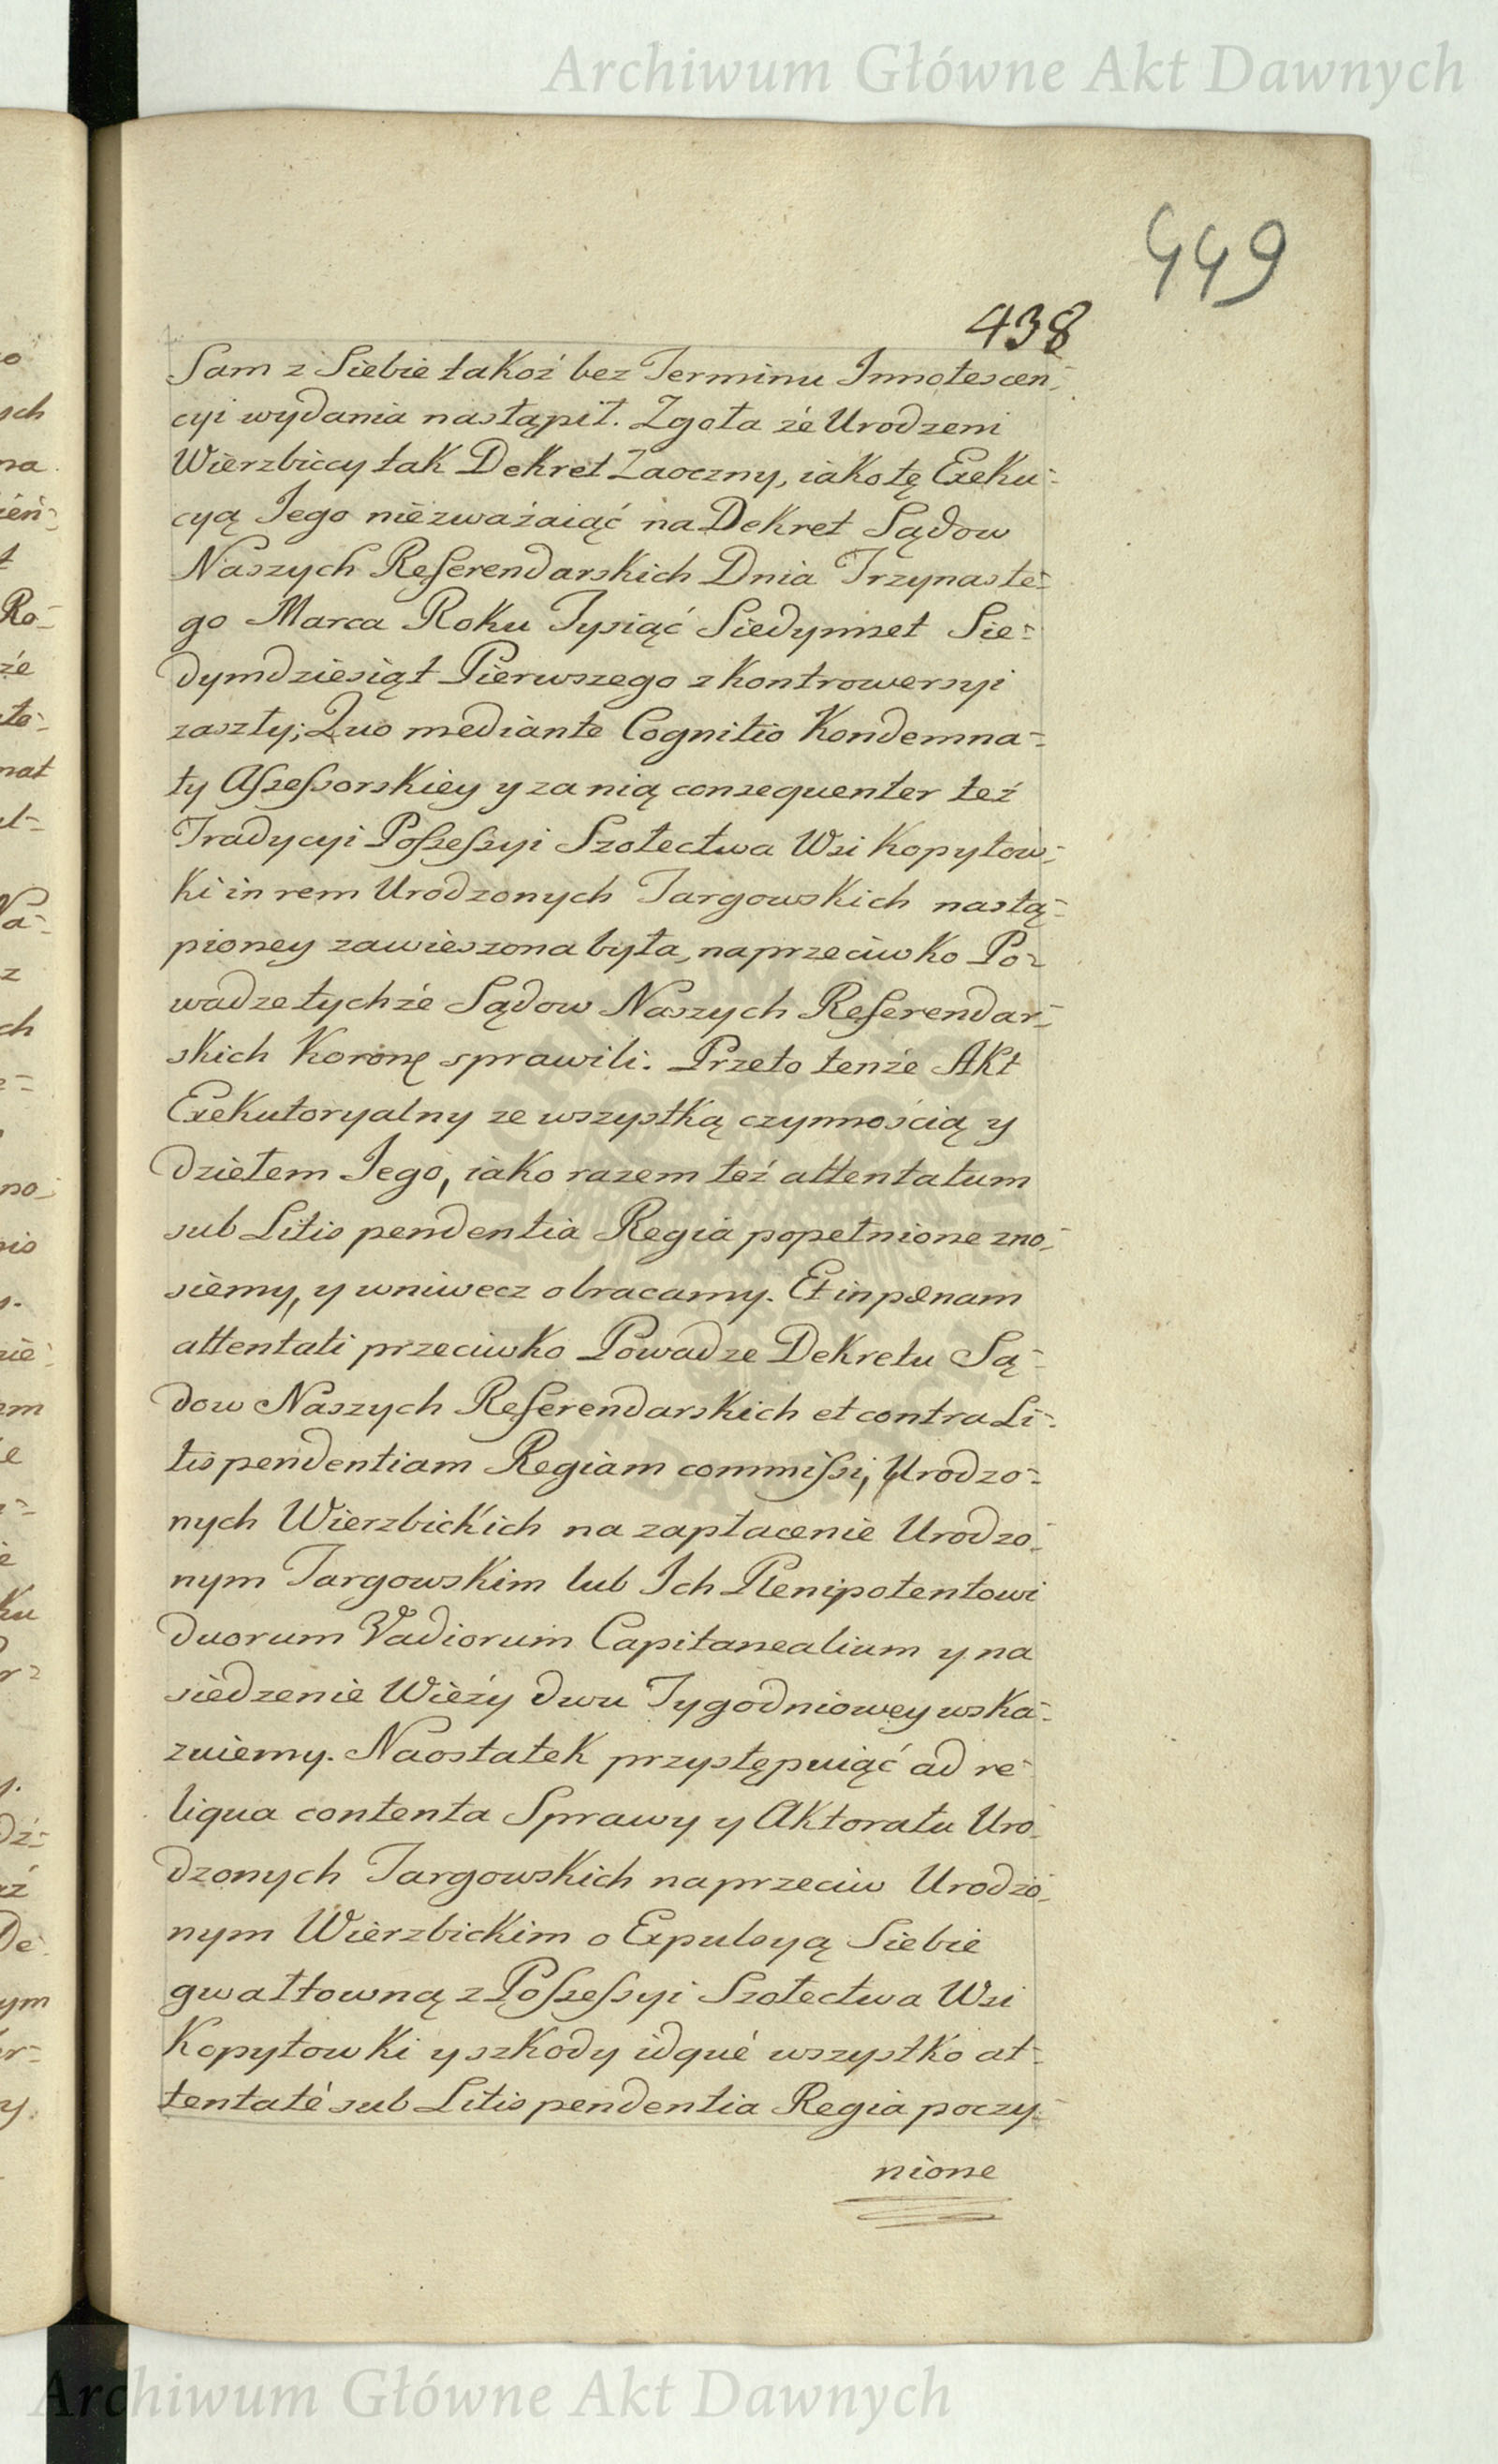 Archiwum Główne Akt Dawnych
449
438
Sam z Siebie takoż bez Terminu Innotescen-
cyi wydania nastąpił. Zgoła że Urodzeni
Wierzbiccy tak Dekret Zaoczny, iako tę Exeku-
cyą Jego niezważaiąć na Dekret Sądow
Naszych Referendarskich Dnia Trzynaste-
go Marca Roku Tysiąć Siedymset Sie-
dymdziesiąt Pierwszego z kontrowersyi
zaszły; Quo mediante Cognitio Kondemna-
ty Assessorskiey y za nią consequenter też
Tradycyi Possessyi Szołectwa Wsi Kopytow-
ki in rem Urodzonych Targowskich nastą-
pioney zawieszona była, naprzeciwko Po-
wadze tychże Sądow Naszych Referendar-
skich Koronę sprawili. Przeto tenże Akt
Exekutoryalny ze wszystką czynnością y
dziełem Jego, iako razem też attentatum
sub Litis pendentia Regia popełnione zno-
siemy, y wniwecz obracamy. Et in pœnam
attentati przeciwko Powadze Dekretu Są-
dow Naszych Referendarskich et contra Li-
tis pendentiam Regiam commissi, Urodzo-
nych Wierzbickich na zapłacenie Urodzo-
nym Targowskim lub Ich Plenipotentowi
duorum Vadiorum Capitanealium y na
siedzenie Wieży dwu Tygodniowey wska-
zuiemy. Naostatek przystępuiąć ad re-
liqua contenta Sprawy y Aktoratu Uro-
dzonych Targowskich naprzeciw Urodzo-
nym Wierzbickim o Expulsyą Siebie
gwałtowną z Possessyi Szołectwa Wsi
Kopytowki y szkody idqué wszystko at-
tentaté sub Litis pendentia Regia poczy-
nione
Archiwum Główne Akt Dawnych